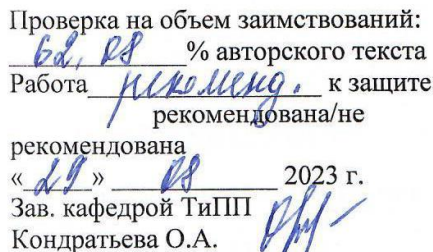 Проверка на объем заимствований:
62,08 % авторского текста
Работа рекоменд. к защите
рекомендована/не
рекомендована
«29» 08 2023 г.
Зав. кафедрой ТиПП
Кондратьева О.А.